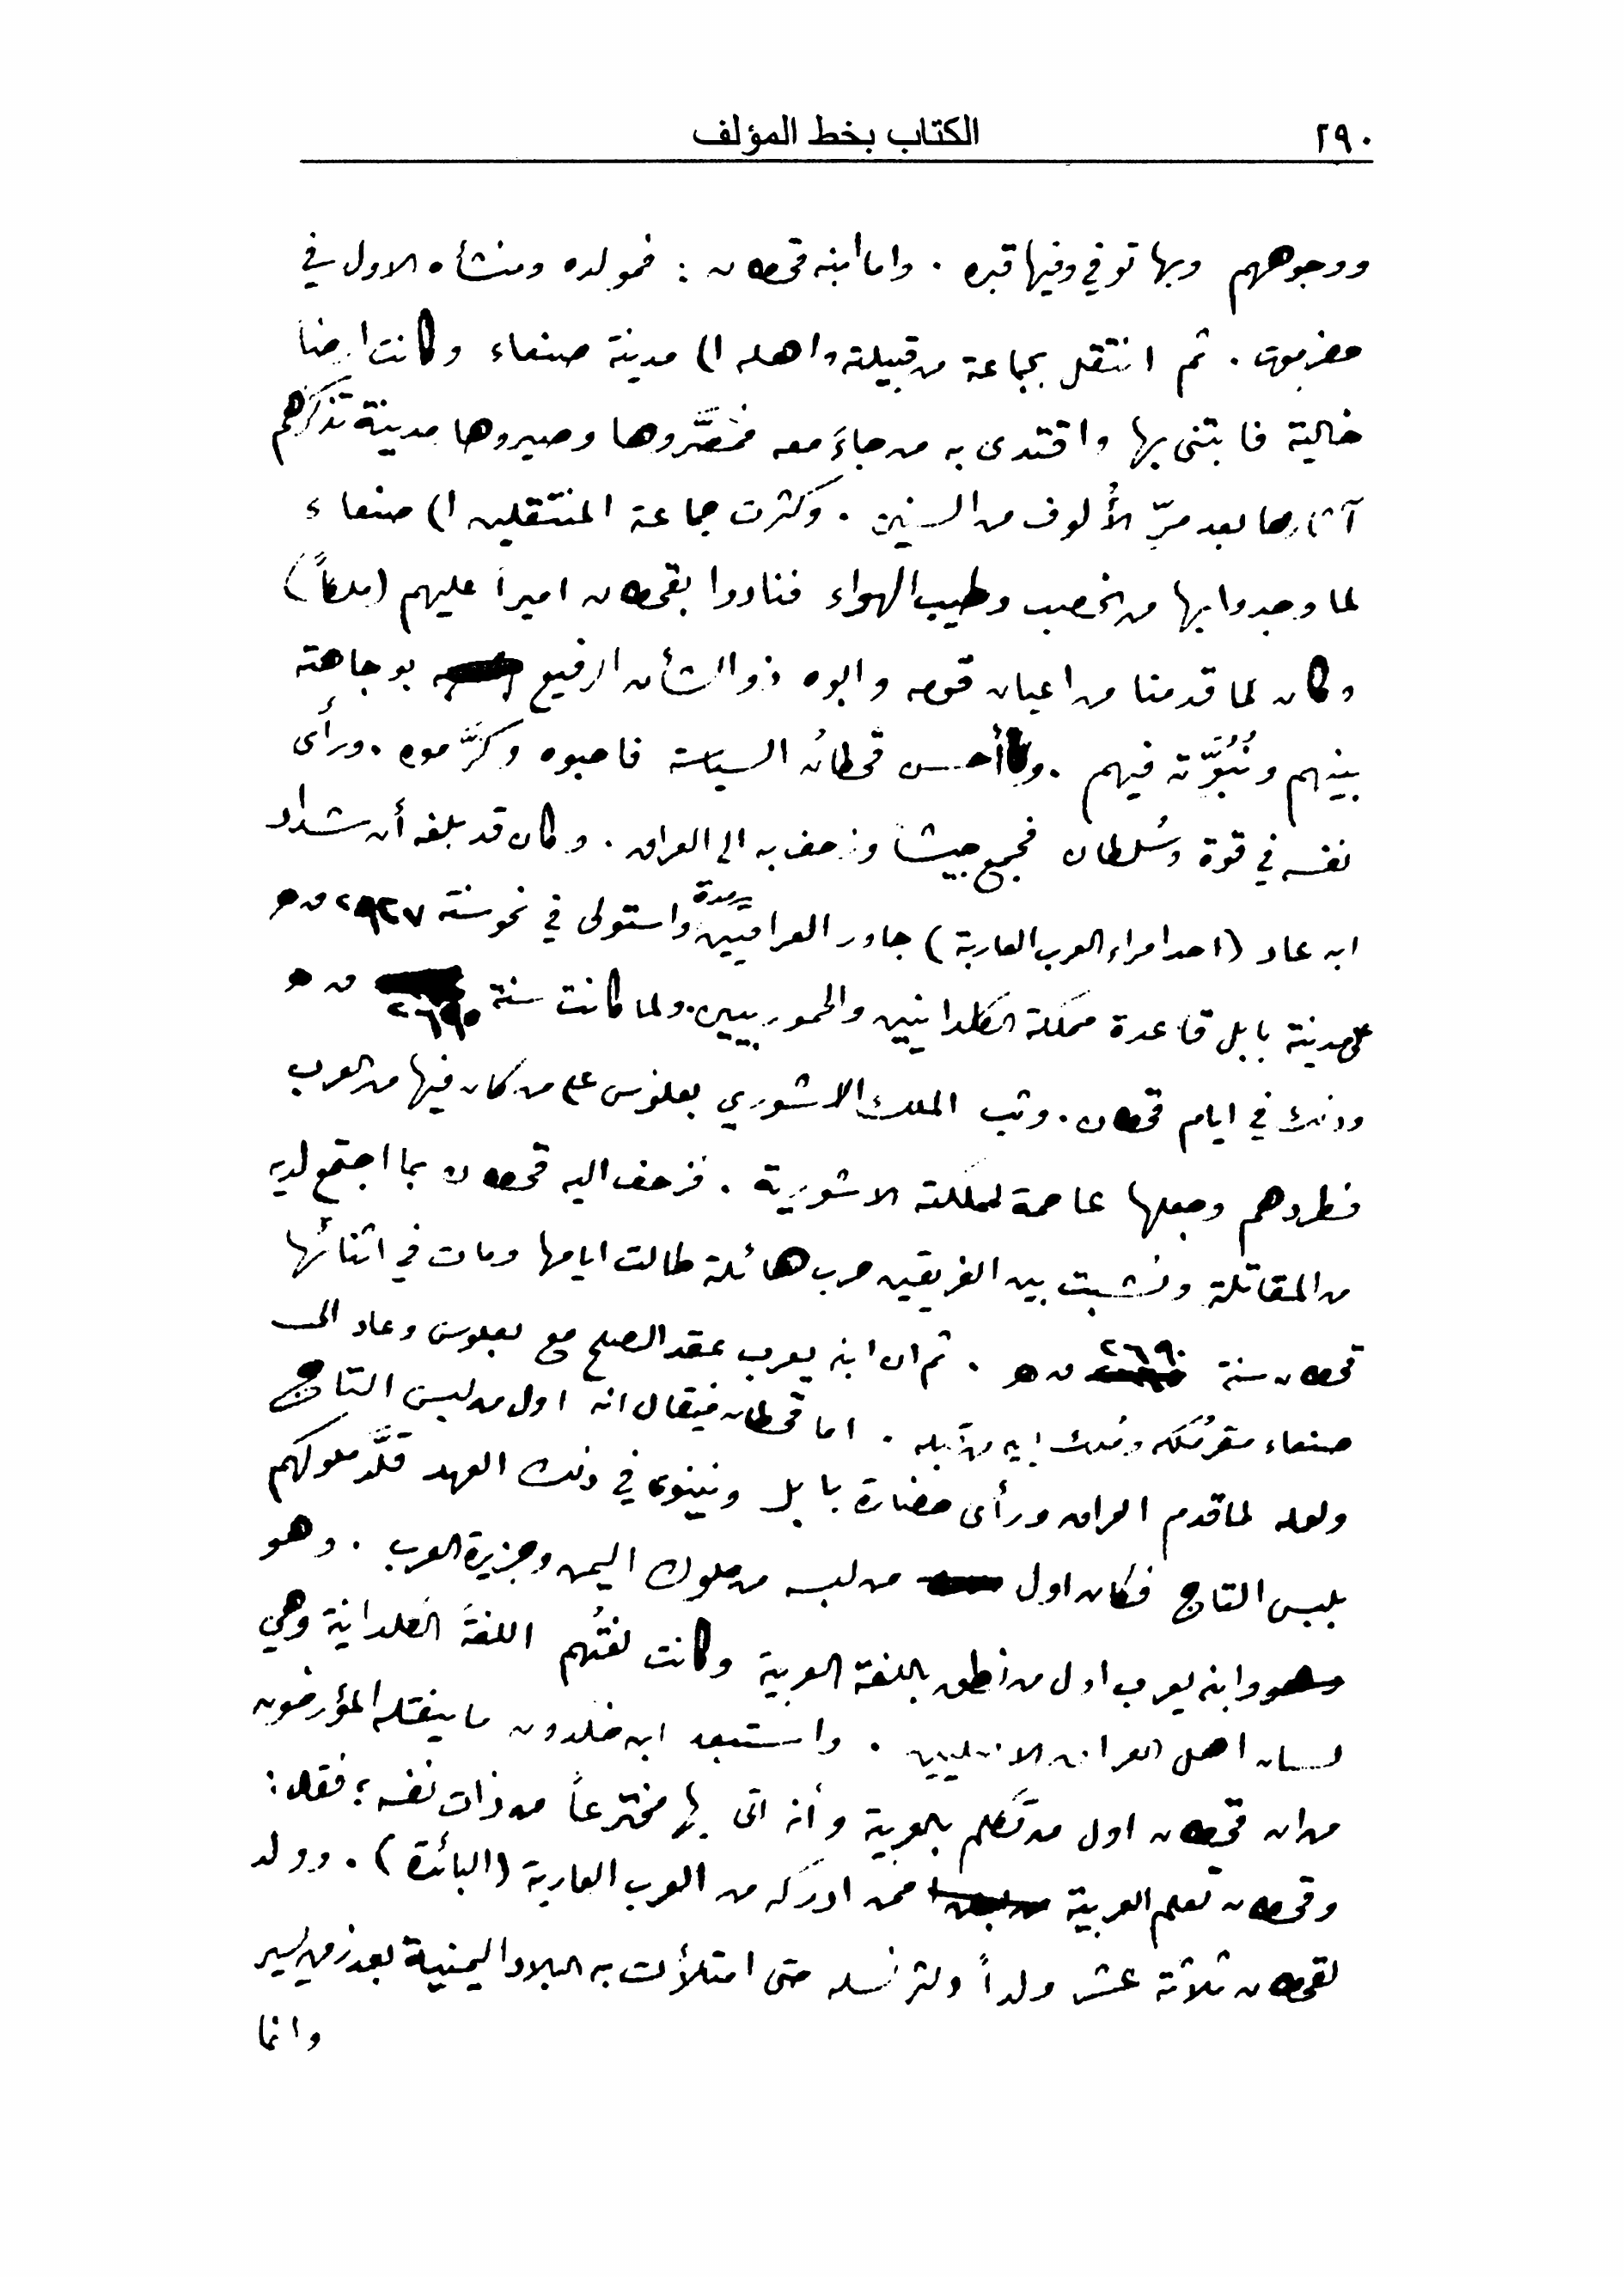 ٢٩٠
الكتاب بخط المؤلف
ووجوههم وبها توفي وفيها قبره . واما ابنه قحطان : فمولده ومنشأه الاول في
حضرموت . ثم انتقل بجماعة من قبيلته واهله الى مدينة صنعاء وكانت ارضا
خالية فابتنى بها واقتدى به من جاءَ معه فمصَّروها وصيروها مدينة تذكرهم
آثارها بعد مرّ الأُلوف من السنين . وكثرت جماعة المنتقلين الى صنعاء
لما وجدوا بها من الخصب وطيب الهواء فنادوا بقحطان اميرا عليهم (ملكاً)
وكان لما قدمنا من اعيان قومه وابوه ذو الشأن الرفيع بوجاهته
بينهم ونُبُوَّته فيهم . وأحسن قحطانُ السياسة فاحبوه وكرَّموه . ورأى
نفسه في قوة وسُلطان فجمع جيشا وزحف به الى العراق . وكان قد بلغه أن شداد
ابن عاد (احد امراء العرب العاربة) جاور العراقيّين مدة واستولى في نحو سنة ٢٩٢٧ ق هـ
على مدينة بابل قاعدة مملكة الكلدانيين والحموربيين . ولما كانت سنة ٢٦٩٥ ق هـ
وذلك في ايام قحطان . وثب الملك الاشوري بعلوس على من كان فيها من العرب
فطردهم وجعلها عاصمة لمملكته الاشورية . فزحف اليه قحطان بما اجتمع لديه
من المقاتلة ونشبت بين الفريقين حرب هائلة طالت ايامها ومات في اثنائها
قحطان سنة ٢٦٩٠ ق هـ . ثم ان ابنه يعرب عقد الصلح مع بعلوس وعاد الى
صنعاء مقر مُلكه ومُلك ابيه من قبله . اما قحطان فيقال انه اول من لبس التاج
ولعله لما قدم العراق ورأى حضارة بابل ونينوى في ذلك العهد قلَّد ملوكهم
بلبس التاج فكان اول من لبسه من ملوك اليمن وجزيرة العرب . وهو
وابنه يعرب اول من نطق باللغة العربية وكانت لغتُهم اللغةَ الكلدانية وهي
لسان اهل العراق الاصليين . واستبعد ابن خلدون ما ينقله المؤرخون
من ان قحطان اول من تكلم بالعربية وأنه اتى بها مخترعاً من ذات نفسه ؛ فقال :
وقحطان تعلم العربية ممن ادركه من العرب العاربة (البائدة) . وولد
لقحطان ثلاثة عشر ولداً وكثر نسله حتى امتلأت به البلاد اليمنية بعد زمن يسير
وانما